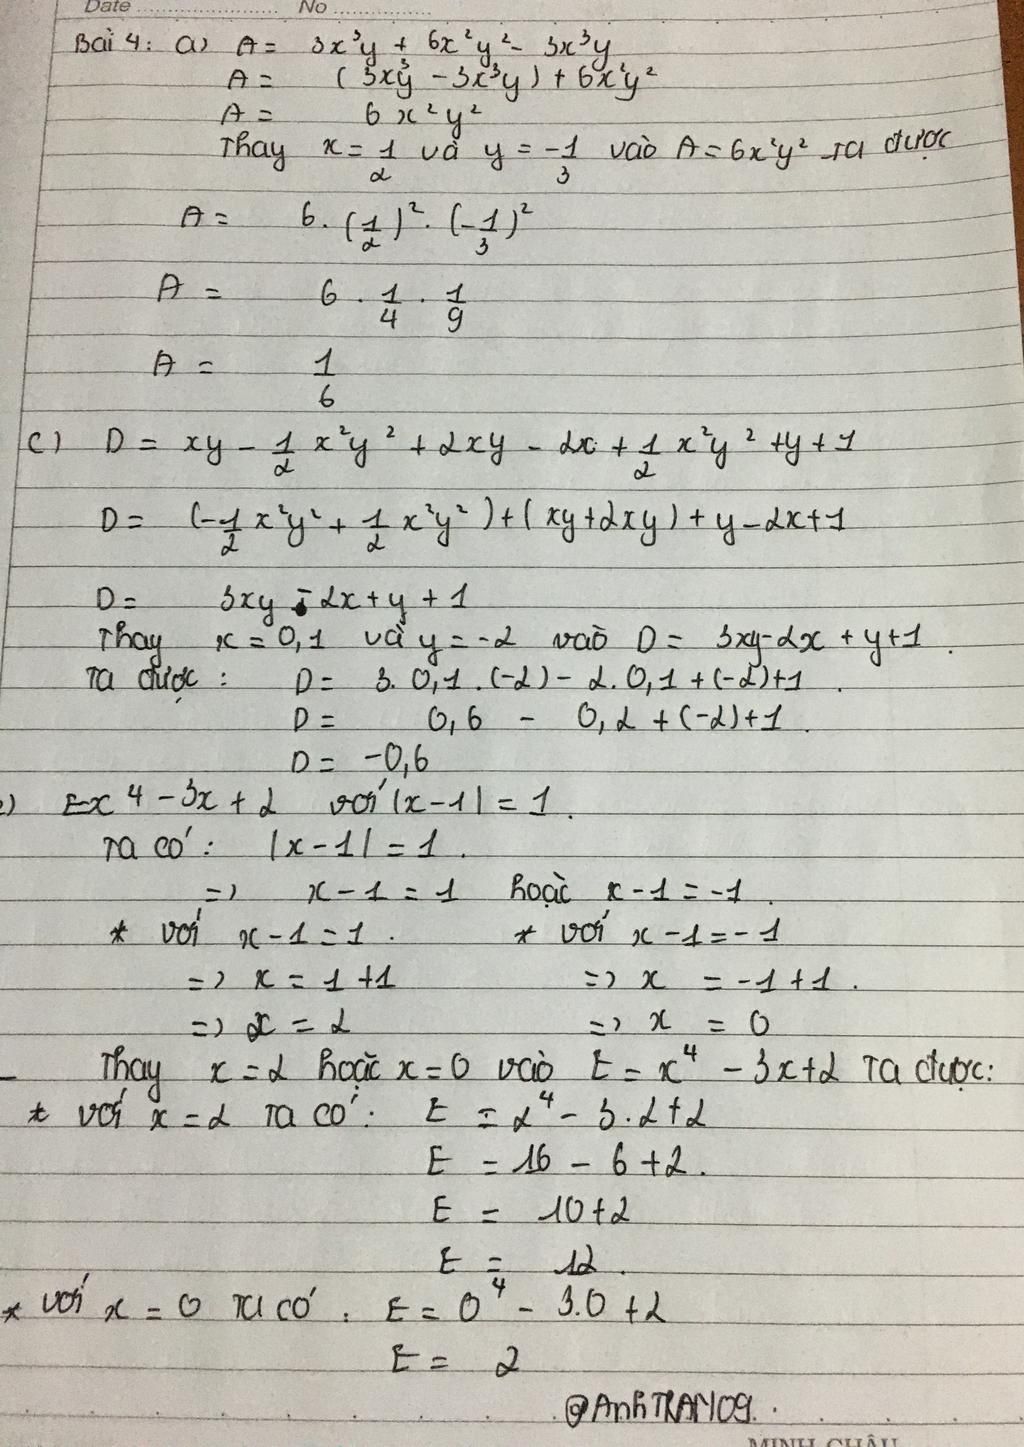 Date No
Bài 4: a) A = 3x³y + 6x²y² - 3x³y
A = (3x³y - 3x³y) + 6x²y²
A = 6x²y²
Thay x = 1/2 và y = -1/3 vào A = 6x²y² ta được
A = 6 . (1/2)² . (-1/3)²
A = 6 . 1/4 . 1/9
A = 1/6
c) D = xy - 1/2 x²y² + 2xy - 2x + 1/2 x²y² + y + 1
D = (-1/2 x²y² + 1/2 x²y²) + (xy + 2xy) + y - 2x + 1
D = 3xy - 2x + y + 1
Thay x = 0,1 và y = -2 vào D = 3xy - 2x + y + 1.
Ta được : D = 3. 0,1 .(-2) - 2. 0,1 + (-2) + 1.
D = 0,6 - 0,2 + (-2) + 1.
D = -0,6
) Ex⁴ - 3x + 2 với |x - 1| = 1.
Ta có : |x - 1| = 1.
=> x - 1 = 1 hoặc x - 1 = -1.
* với x - 1 = 1. * với x - 1 = -1
=> x = 1 + 1 => x = -1 + 1.
=> x = 2 => x = 0
Thay x = 2 hoặc x = 0 vào E = x⁴ - 3x + 2 ta được:
* với x = 2 ta có : E = 2⁴ - 3.2 + 2
E = 16 - 6 + 2.
E = 10 + 2
E = 12.
* với x = 0 ta có : E = 0⁴ - 3.0 + 2
E = 2
@AnhTRAN09.
MINH CHÂU